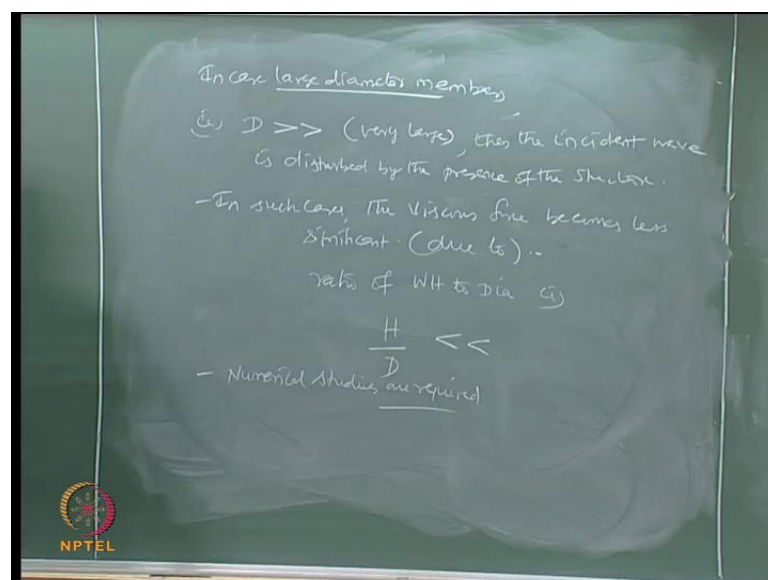 In case large diameter members
(ie) D >> (very large), then the incident wave
is disturbed by the presence of the structure.
- In such cases, the viscous force becomes less
significant. (due to) ..
ratio of WH to Dia (is)
H
D <<
- Numerical studies are required
NPTEL